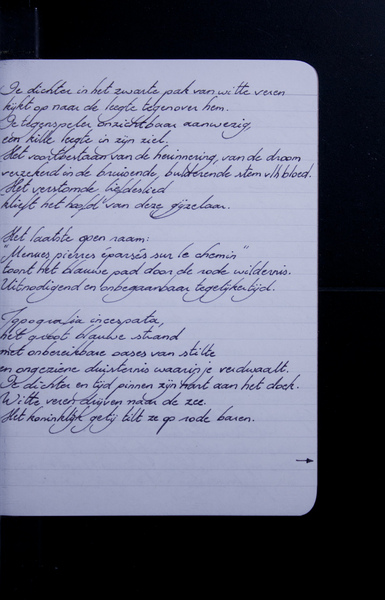 De dichter in het zwarte pak van witte veren
kijkt op naar de leegte tegenover hem.
De tegenspeler onzichtbaar aanwezig,
een kille leegte in zijn ziel.
Het voortbestaan van de herinnering, van de droom
verzekerd in de bruisende, bulderende stem v/h bloed.
Het verstomde liefdeslied
klieft het hoofd van deze gijzelaar.
Het laatste open raam:
"Menues pierres éparsés sur le chemin"
toont het blauwe pad door de rode wildernis.
Uitnodigend en onbegaanbaar tegelijkertijd.
Topografia incespata,
het groot blauwe strand
met onbereikbare oases van stilte
en ongeziene duisternis waarin je verdwaalt.
De dichter en tijd pinnen zijn hart aan het doek.
Witte veren drijven naar de zee.
Het koninklijk getij tilt ze op rode baren.